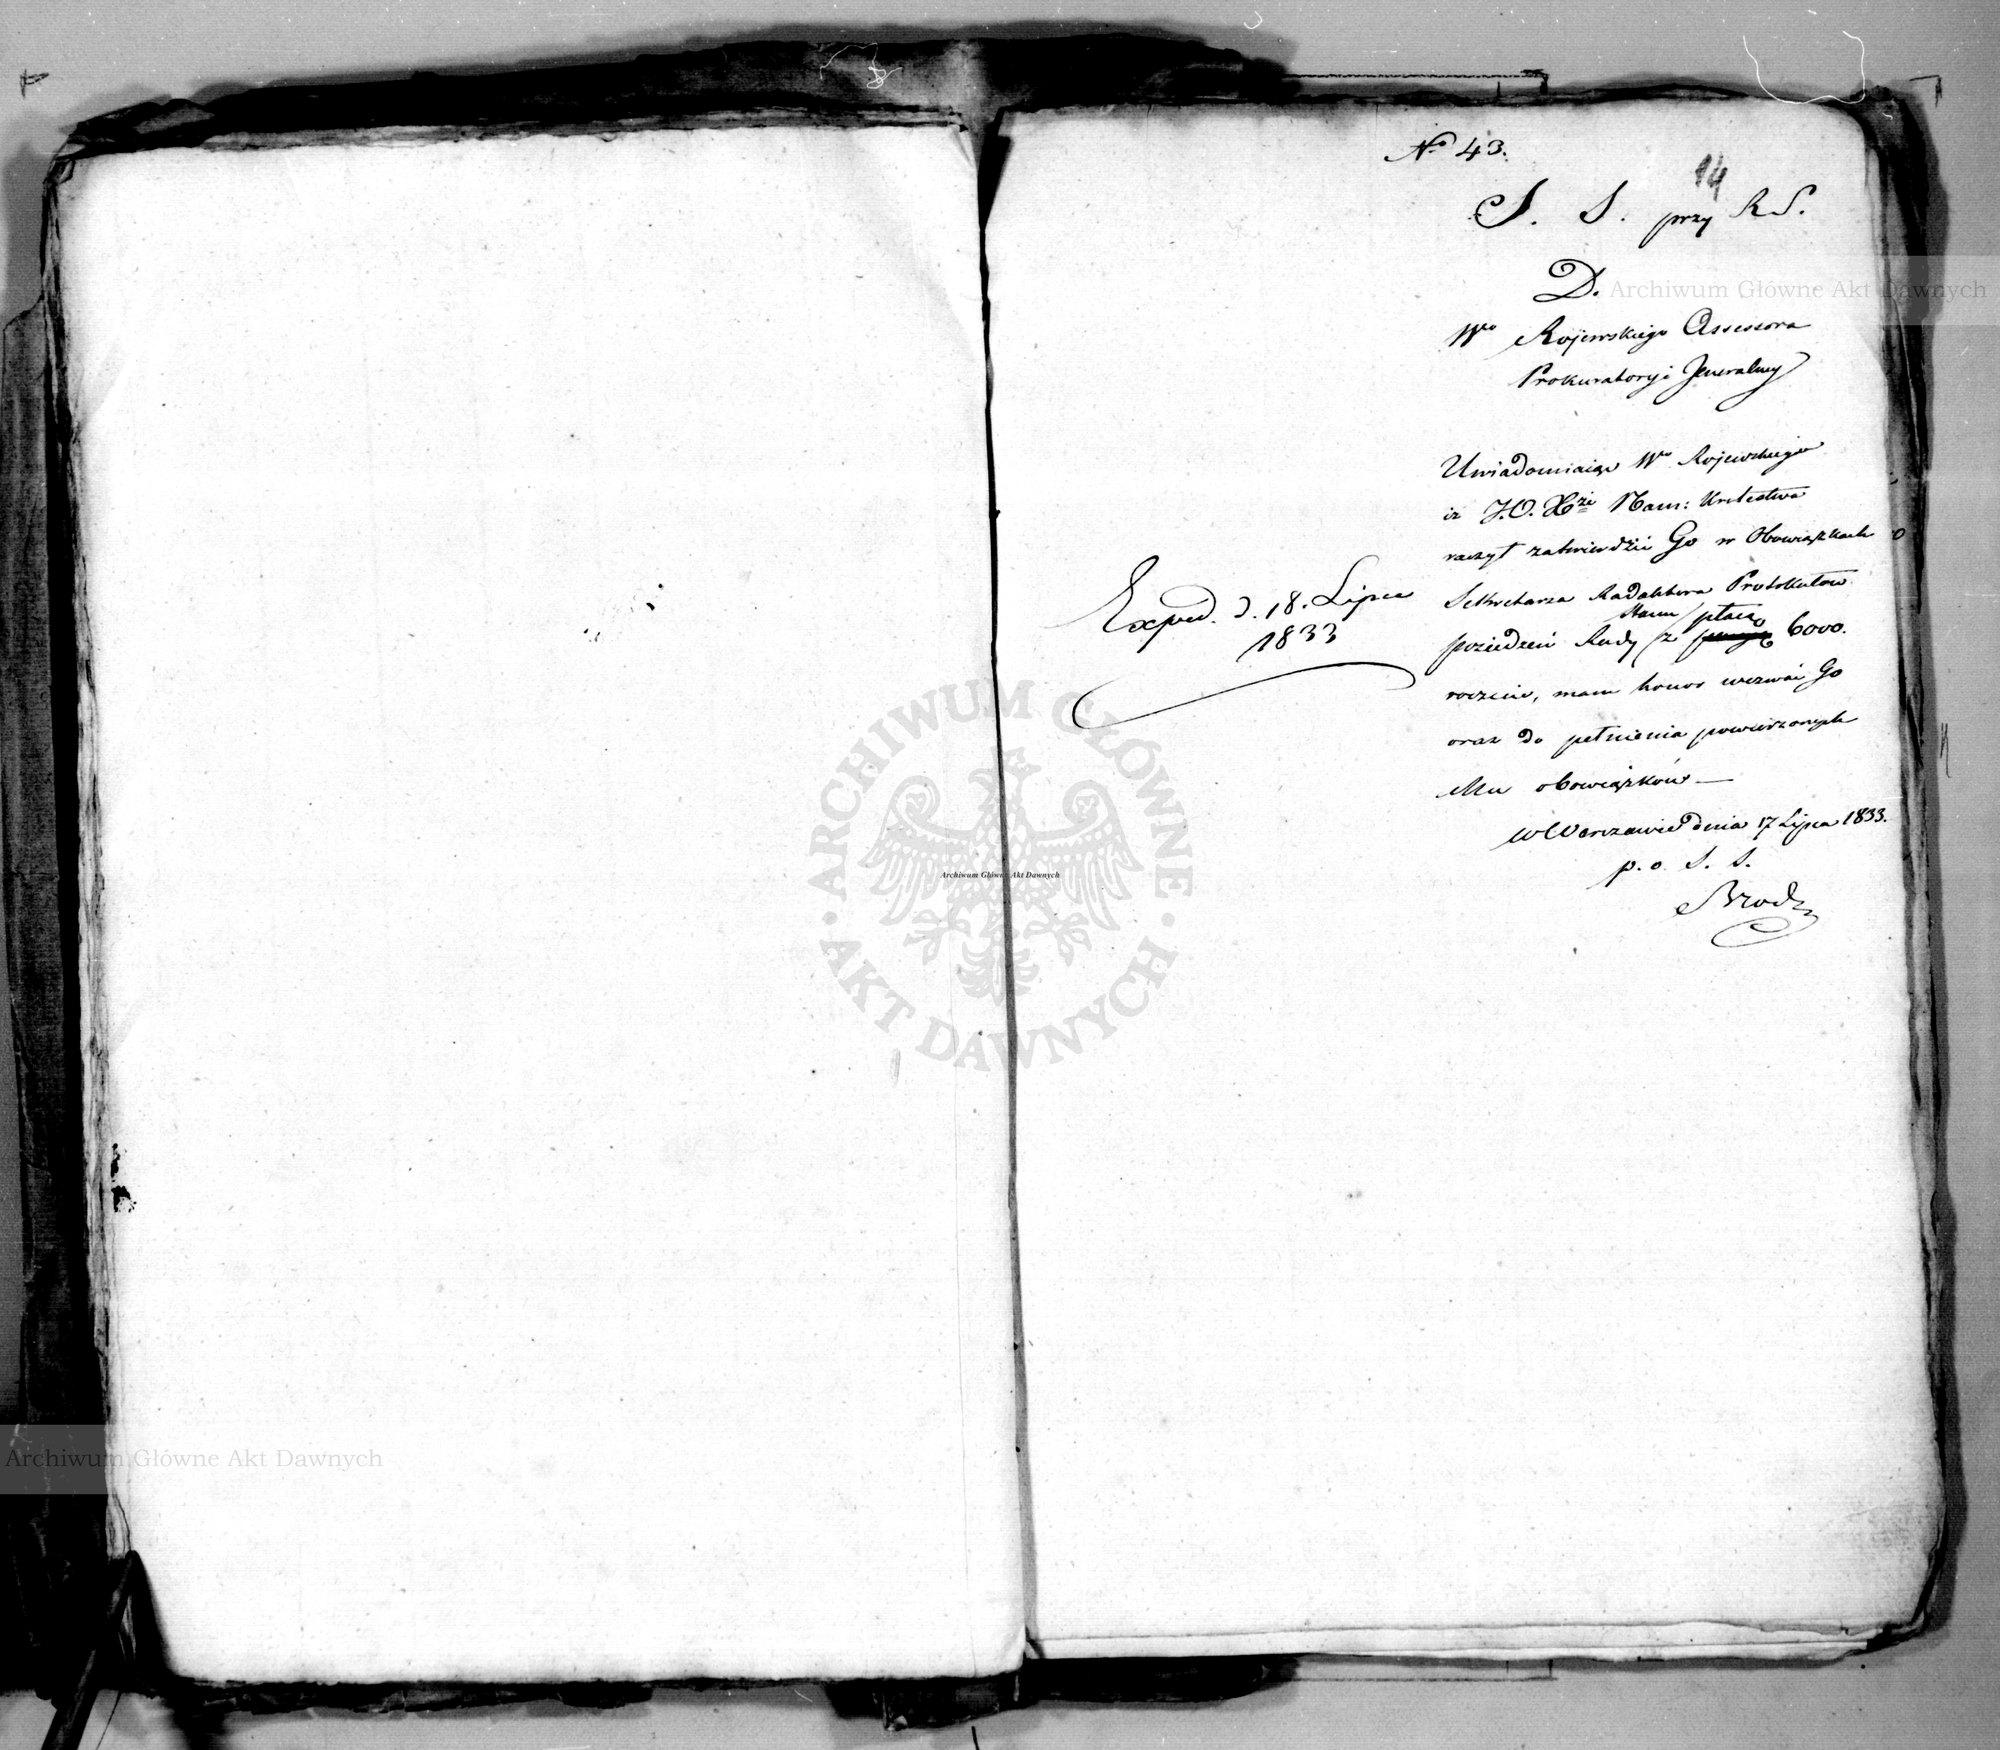 No 43.
14
S. S. przy R S.
D.
Wo Rojewskiego Assessora
Prokuratoryi Jeneralney
Uwiadomiaiąc Wo Rojewskiego
iż J.O. Xże Nam: Królestwa
raczył zatwierdzić Go w Obowiązkach
Sekretarza Radaktora Protokułów
Stanu płacą
posiedzeń Rady z 6000.
rocznie, mam honor wezwać Go
oraz do pełnienia powierzonych
Mu obowiązków —
w Warszawie dnia 17 Lipca 1833.
p. o. S. S.
Brodz
Exped. d. 18. Lipca
1833
Archiwum Główne Akt Dawnych
ARCHIWUM GŁÓWNE
AKT DAWNYCH
Archiwum Główne Akt Dawnych
Archiwum Główne Akt Dawnych